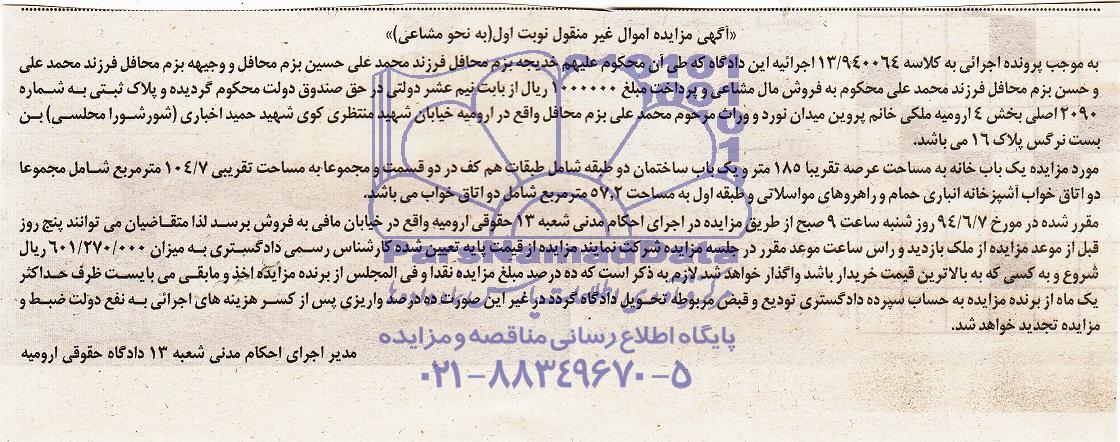 «آگهی مزایده اموال غیر منقول نوبت اول(به نحو مشاعی)»
به موجب پرونده اجرائی به کلاسه ۱۳/۹۴۰۰۶۴ اجرائیه این دادگاه که طی آن محکوم علیهم خدیجه بزم محافل فرزند محمد علی حسین بزم محافل و وجیهه بزم محافل فرزند محمد علی
و حسن بزم محافل فرزند محمد علی محکوم به فروش مال مشاعی و پرداخت مبلغ ۱۰۰۰۰۰۰ ریال از بابت نیم عشر دولتی در حق صندوق دولت محکوم گردیده و پلاک ثبتی به شماره
۲۰۹۰ اصلی بخش ٤ ارومیه ملکی خانم پروین میدان نورد و وراث مرحوم محمد علی بزم محافل واقع در ارومیه خیابان شهید منتظری کوی شهید حمید اخباری (شورشورا مجلسی) بن
بست نرگس پلاک ۱۶ می باشد.
مورد مزایده یک باب خانه به مساحت عرصه تقریبا ۱۸۵ متر و یک باب ساختمان دو طبقه شامل طبقات هم کف در دو قسمت و مجموعا به مساحت تقریبی ۱۰۴/۷ مترمربع شامل مجموعا
دو اتاق خواب آشپزخانه انباری حمام و راهروهای مواسلاتی و طبقه اول به مساحت ۵۷,۲ مترمربع شامل دو اتاق خواب می باشد.
مقرر شده در مورخ ۹۴/۶/۷ روز شنبه ساعت ۹ صبح از طریق مزایده در اجرای احکام مدنی شعبه ۱۳ حقوقی ارومیه واقع در خیابان مافی به فروش برسد لذا متقاضیان می توانند پنج روز
قبل از موعد مزایده از ملک بازدید و راس ساعت موعد مقرر در جلسه مزایده شرکت نمایند مزایده از قیمت پایه تعیین شده کارشناس رسمی دادگستری به میزان ۶۰۱/۲۷۰/۰۰۰ ریال
شروع و به کسی که به بالاترین قیمت خریدار باشد واگذار خواهد شد لازم به ذکر است که ده درصد مبلغ مزایده نقدا و فی المجلس از برنده مزایده اخذ و مابقی می بایست ظرف حداکثر
یک ماه از برنده مزایده به حساب سپرده دادگستری تودیع و قبض مربوطه تحویل دادگاه گردد در غیر این صورت ده درصد واریزی پس از کسر هزینه های اجرائی به نفع دولت ضبط و
مزایده تجدید خواهد شد.
مدیر اجرای احکام مدنی شعبه ۱۳ دادگاه حقوقی ارومیه
ParsNamadData
پایگاه اطلاع رسانی مناقصه و مزایده
۰۲۱-۸۸۳۴۹۶۷۰-۵